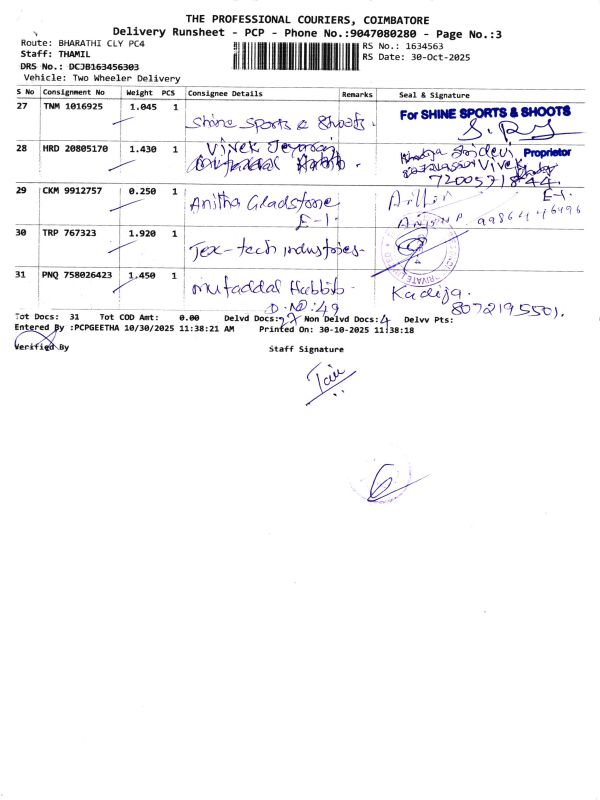 THE PROFESSIONAL COURIERS, COIMBATORE
Delivery Runsheet - PCP - Phone No.:9047080280 - Page No.:3
Route: BHARATHI CLY PC4 RS No.: 1634563
Staff: THAMIL RS Date: 30-Oct-2025
DRS No.: DCJB163456303
Vehicle: Two Wheeler Delivery
S No Consignment No Weight PCS Consignee Details Remarks Seal & Signature
27 TNM 1016925 1.045 1 Shine Sports & Shoots. For SHINE SPORTS & SHOOTS
28 HRD 20805170 1.430 1 Vivek Proprietor
Sridevi
Vivek
7200571844.
29 CKM 9912757 0.250 1 Anitha Gladstone
E-1. E-1
9986446496
30 TRP 767323 1.920 1 Tex-tech industries-
31 PNQ 758026423 1.450 1 mufaddal Habbib- Kadija.
D.NO:49 8072195501.
Tot Docs: 31 Tot COD Amt: 0.00 Delvd Docs:27 Non Delvd Docs:4 Delvv Pts:
Entered By :PCPGEETHA 10/30/2025 11:38:21 AM Printed On: 30-10-2025 11:38:18
Verified By Staff Signature